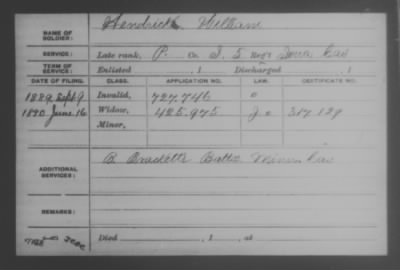 NAME OF SOLDIER: Hendrick William
SERVICE: Late rank, P. Co. I, 5 Reg't Iowa Cav
TERM OF SERVICE: Enlisted , 1 Discharged , 1
DATE OF FILING. CLASS. APPLICATION NO. LAW. CERTIFICATE NO.
1889 Sept 9 Invalid, 727.746 0
1890 June 16 Widow, 425.975 317.129
Minor,
ADDITIONAL SERVICES: B. Bracketts Batto Minn Cav
REMARKS:
Died , 1 , at